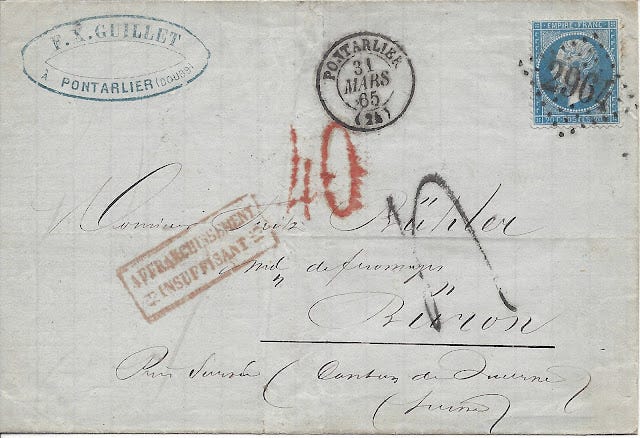 F. X. GUILLET
À PONTARLIER (DOUBS)
PONTARLIER
31
MARS
65
(24)
EMPIRE FRANC
2964
40
AFFRANCHISSEMENT
INSUFFISANT
Monsieur Fritz Bühler
md de fromages
Büron
Près Sursée (Canton de Lucerne)
Suisse